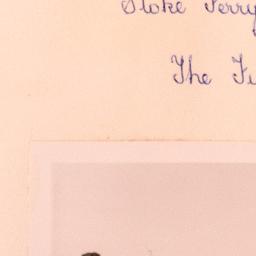 Stoke Ferry
The